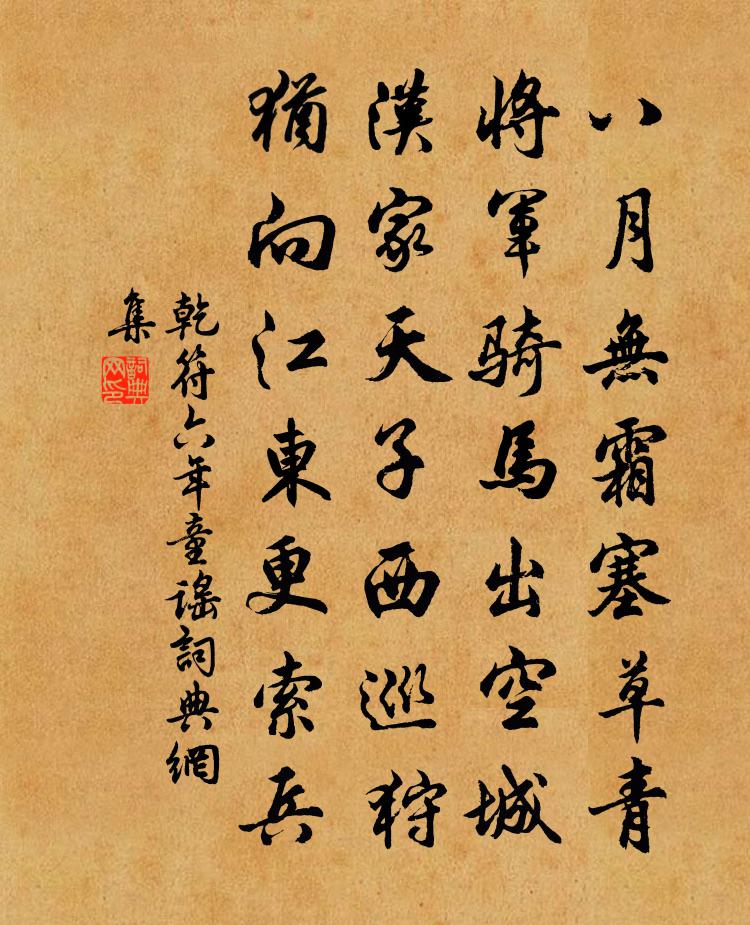 八月無霜塞草青
將軍騎馬出空城
漢家天子西巡狩
猶向江東更索兵
乾符六年童謡詞典網
集
詞典
网印